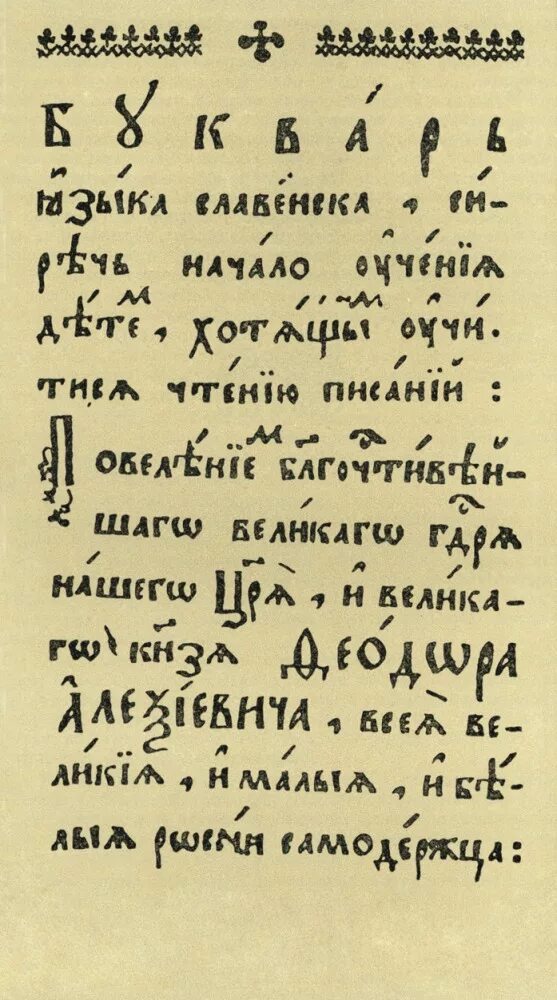 Бꙋква́рь
ꙗ҆зы́ка славе́нска, си́-
рѣчь нача́ло оу҆че́нїѧ
дѣ́теⷨ, хотѧ́щыⷨ оу҆чи́-
тисѧ чте́нїю писа́нїй :
Повелѣ́нїеⷨ бл҃гочⷭ҇ти́вѣй-
шагѡ вели́кагѡ гдⷭ҇рѧ
на́шегѡ Цр҃ѧ̀, и҆ вели́ка-
гѡ̀ кн҃зѧ Ѳео́дѡра
А҆леѯі́евича, всеѧ̀ ве-
ли́кїѧ, и҆ ма́лыѧ, и҆ бѣ́-
лыѧ рѡсі́и самоде́ржца :